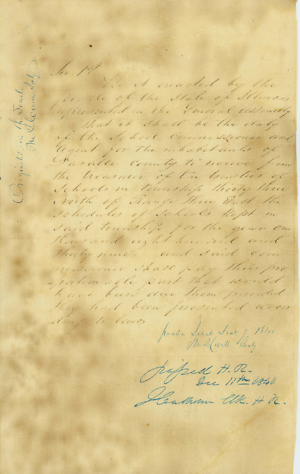 Sec 1st
Be it enacted by the
people of the State of Illinois
represented in the General assembly
that it shall be the duty
of the School commissioner and
agent for the inhabitants of
county to receive from
the treasurer of the trustees of
Schools in township thirty three
North of Range three East the
schedules of Schools kept in
said township for the year one
thousand eight hundred and
thirty nine and said com
missioner shall pay their pro
portionable part that would
have been due them provided
they had been presented accor
ding to law
Dec 7, 1840
H. R.
Dec 11th 1840
Clk. H. R.